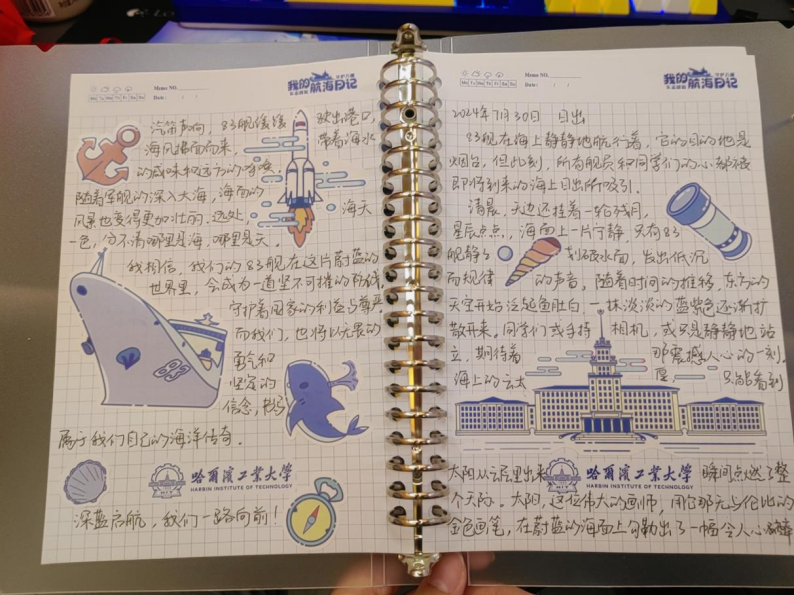 Memo NO.
Mo Tu We Th Fr Sa Su
Date: / /
我的航海日记
汽笛声响，83舰缓缓驶出港口，
海风扑面而来，带着海水
的咸味和远方的呼唤。
随着军舰的深入大海，海面的
风景也变得更加壮丽。远处，海天
一色，分不清哪里是海，哪里是天。
我相信，我们的83舰在这片蔚蓝的
世界里，会成为一道坚不可摧的防线，
守护着国家的利益与尊严。
而我们，也将以无畏的
勇气和
坚定的
信念，书写
属于我们自己的海洋传奇。
83
哈尔滨工业大学
HARBIN INSTITUTE OF TECHNOLOGY
深蓝启航，我们一路向前！
Memo NO.
Mo Tu We Th Fr Sa Su
Date: / /
我的航海日记
2024年7月30日 日出
83舰在海上静静地航行着，它的目的地是
烟台，但此刻，所有舰员和同学们的心都被
即将到来的海上日出所吸引。
清晨，天边还挂着一轮残月，
星辰点点，海面上一片宁静，只有83
舰静静划破水面，发出低沉
而规律的声音，随着时间的推移，东方的
天空开始泛起鱼肚白，一抹淡淡的蓝紫色逐渐扩
散开来。同学们或手持相机，或只是静静地站
立，期待着那震撼人心的一刻。
海上的云太厚，只能看到
太阳从云层里出来，瞬间点燃了整
哈尔滨工业大学
HARBIN INSTITUTE OF TECHNOLOGY
个天际。太阳，这位伟大的画师，用它那无与伦比的
金色画笔，在蔚蓝的海面上勾勒出了一幅令人心